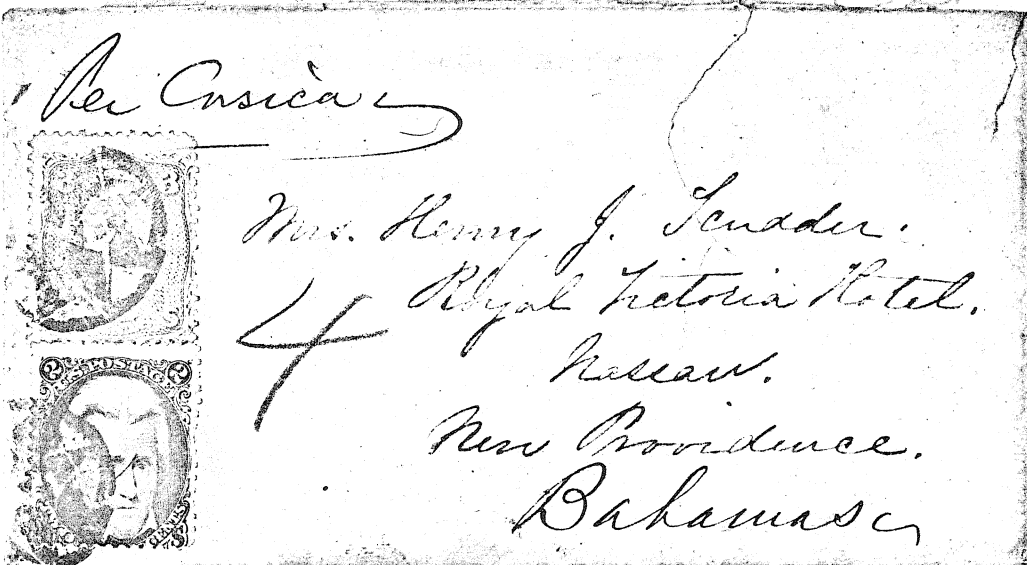 Per Corsica
Mrs. Henry J. Scudder.
Royal Victoria Hotel.
4
Nassau.
New Providence.
Bahamas
2 2
U.S. POSTAGE
CENTS